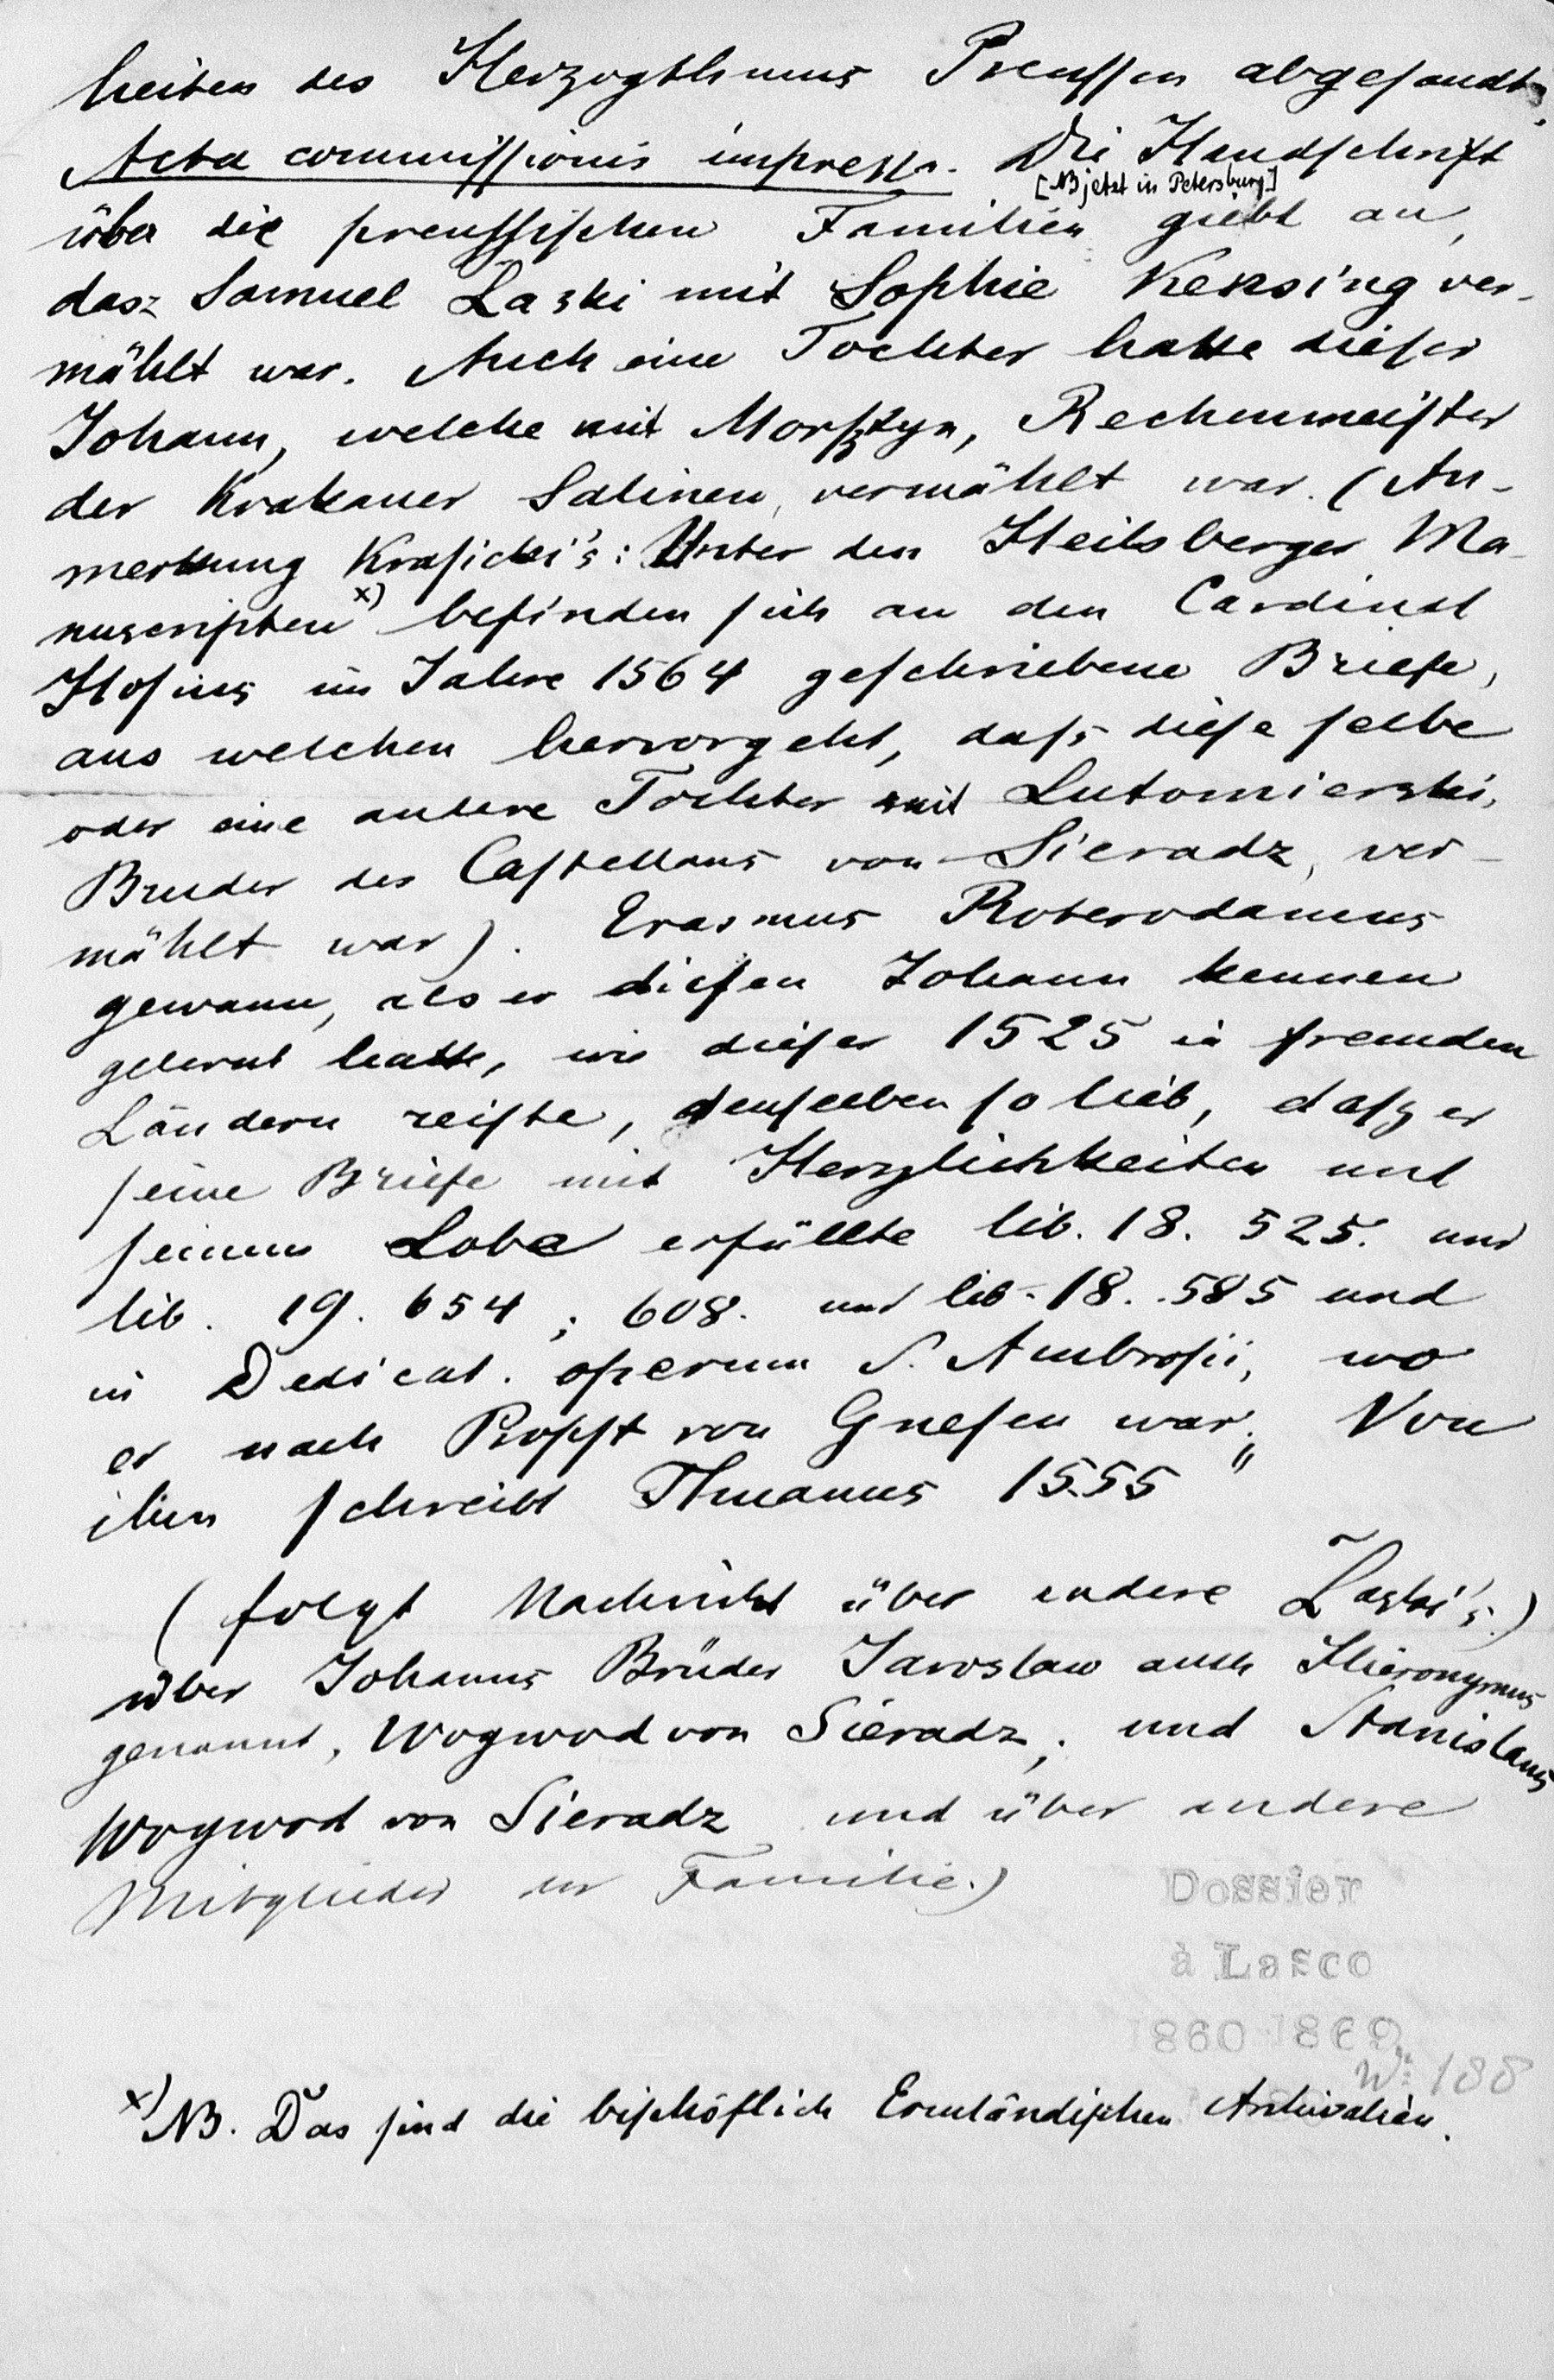 heiten des Herzogthums Preussen abgesandt,
Acta commissionis impressa. Die Handschrift
[NB jetzt in Petersburg]
über die preussischen Familien giebt an,
dasz Samuel Laski mit Sophie Keksing ver-
mählt war. Auch eine Tochter hatte dieser
Johann, welche mit Morsztyn, Rechenmeister
der Krakauer Salinen, vermählt war. (An-
merkung Krasicki's: Unter den Heilsberger Ma-
nuscripten x) befinden sich an den Cardinal
Hosius im Jahre 1564 geschriebene Briefe,
aus welchen hervorgeht, dass diese selbe
oder eine andere Tochter mit Lutomierski,
Bruder des Castellans von Sieradz, ver-
mählt war). Erasmus Roterodamus
gewann, als er diesen Johann kennen
gelernt hatte, wie dieser 1525 in fremden
Ländern reiste, denselben so lieb, dasz er
seine Briefe mit Herzlichkeiten und
seinem Lobe erfüllte lib. 18. 525. und
lib. 19. 654 ; 608. und lib. 18. 585 und
in Dedicat. operum S. Ambrosii, wo
er nach Propst von Gnesen war. Von
ihm schreibt Thuanus 1555"
(folgt Nachricht über andere Łaski's.)
über Johanns Brüder Jaroslaw auch Hieronymus
genannt, Woywod von Sieradz; und Stanislaus
Woywod von Sieradz und über andere
Mitglieder der Familie.)
Dossier
à Lasco
1860 1869
No 188
x) NB. Das sind die bischöflich Ermländischen Archivalien.